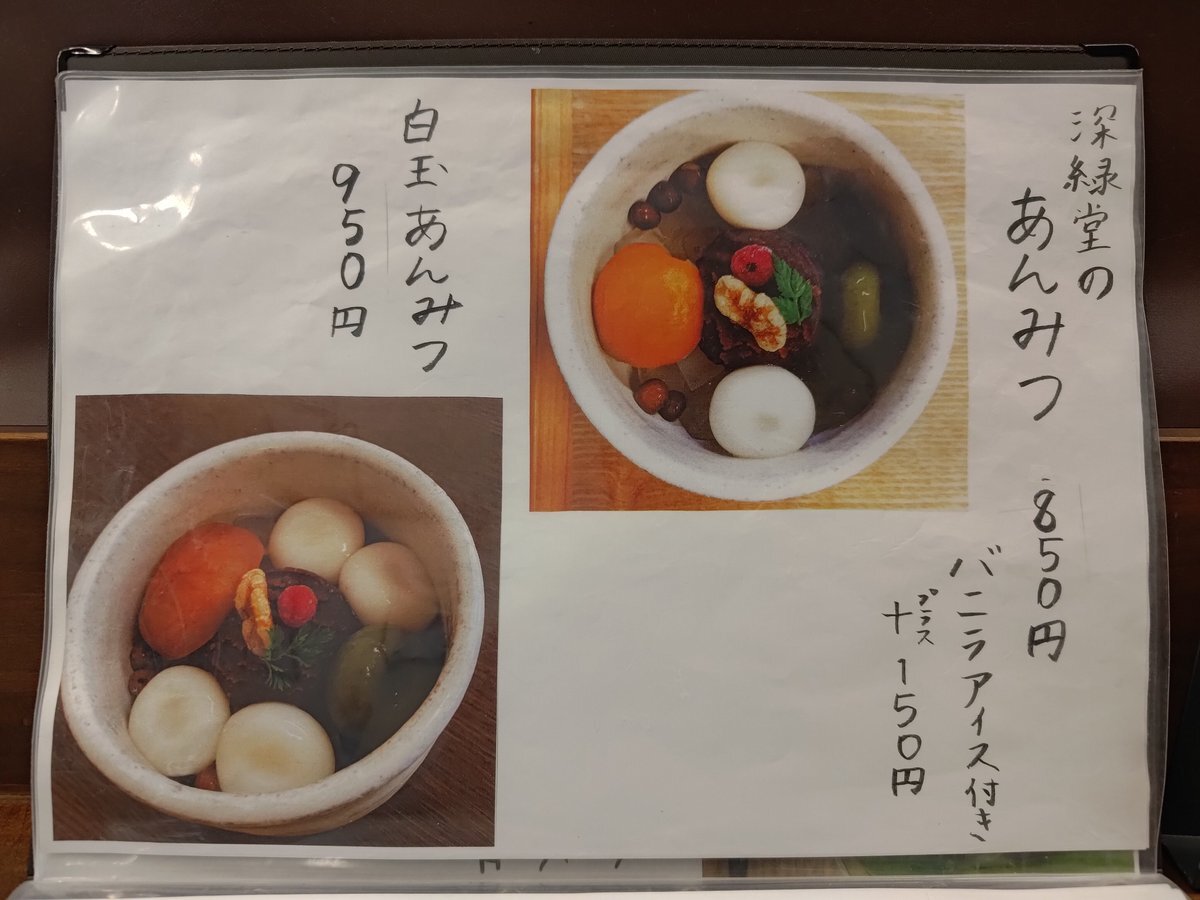 深緑堂の
あんみつ 850円
バニラアイス付き
プラス
+150円
白玉あんみつ
950円